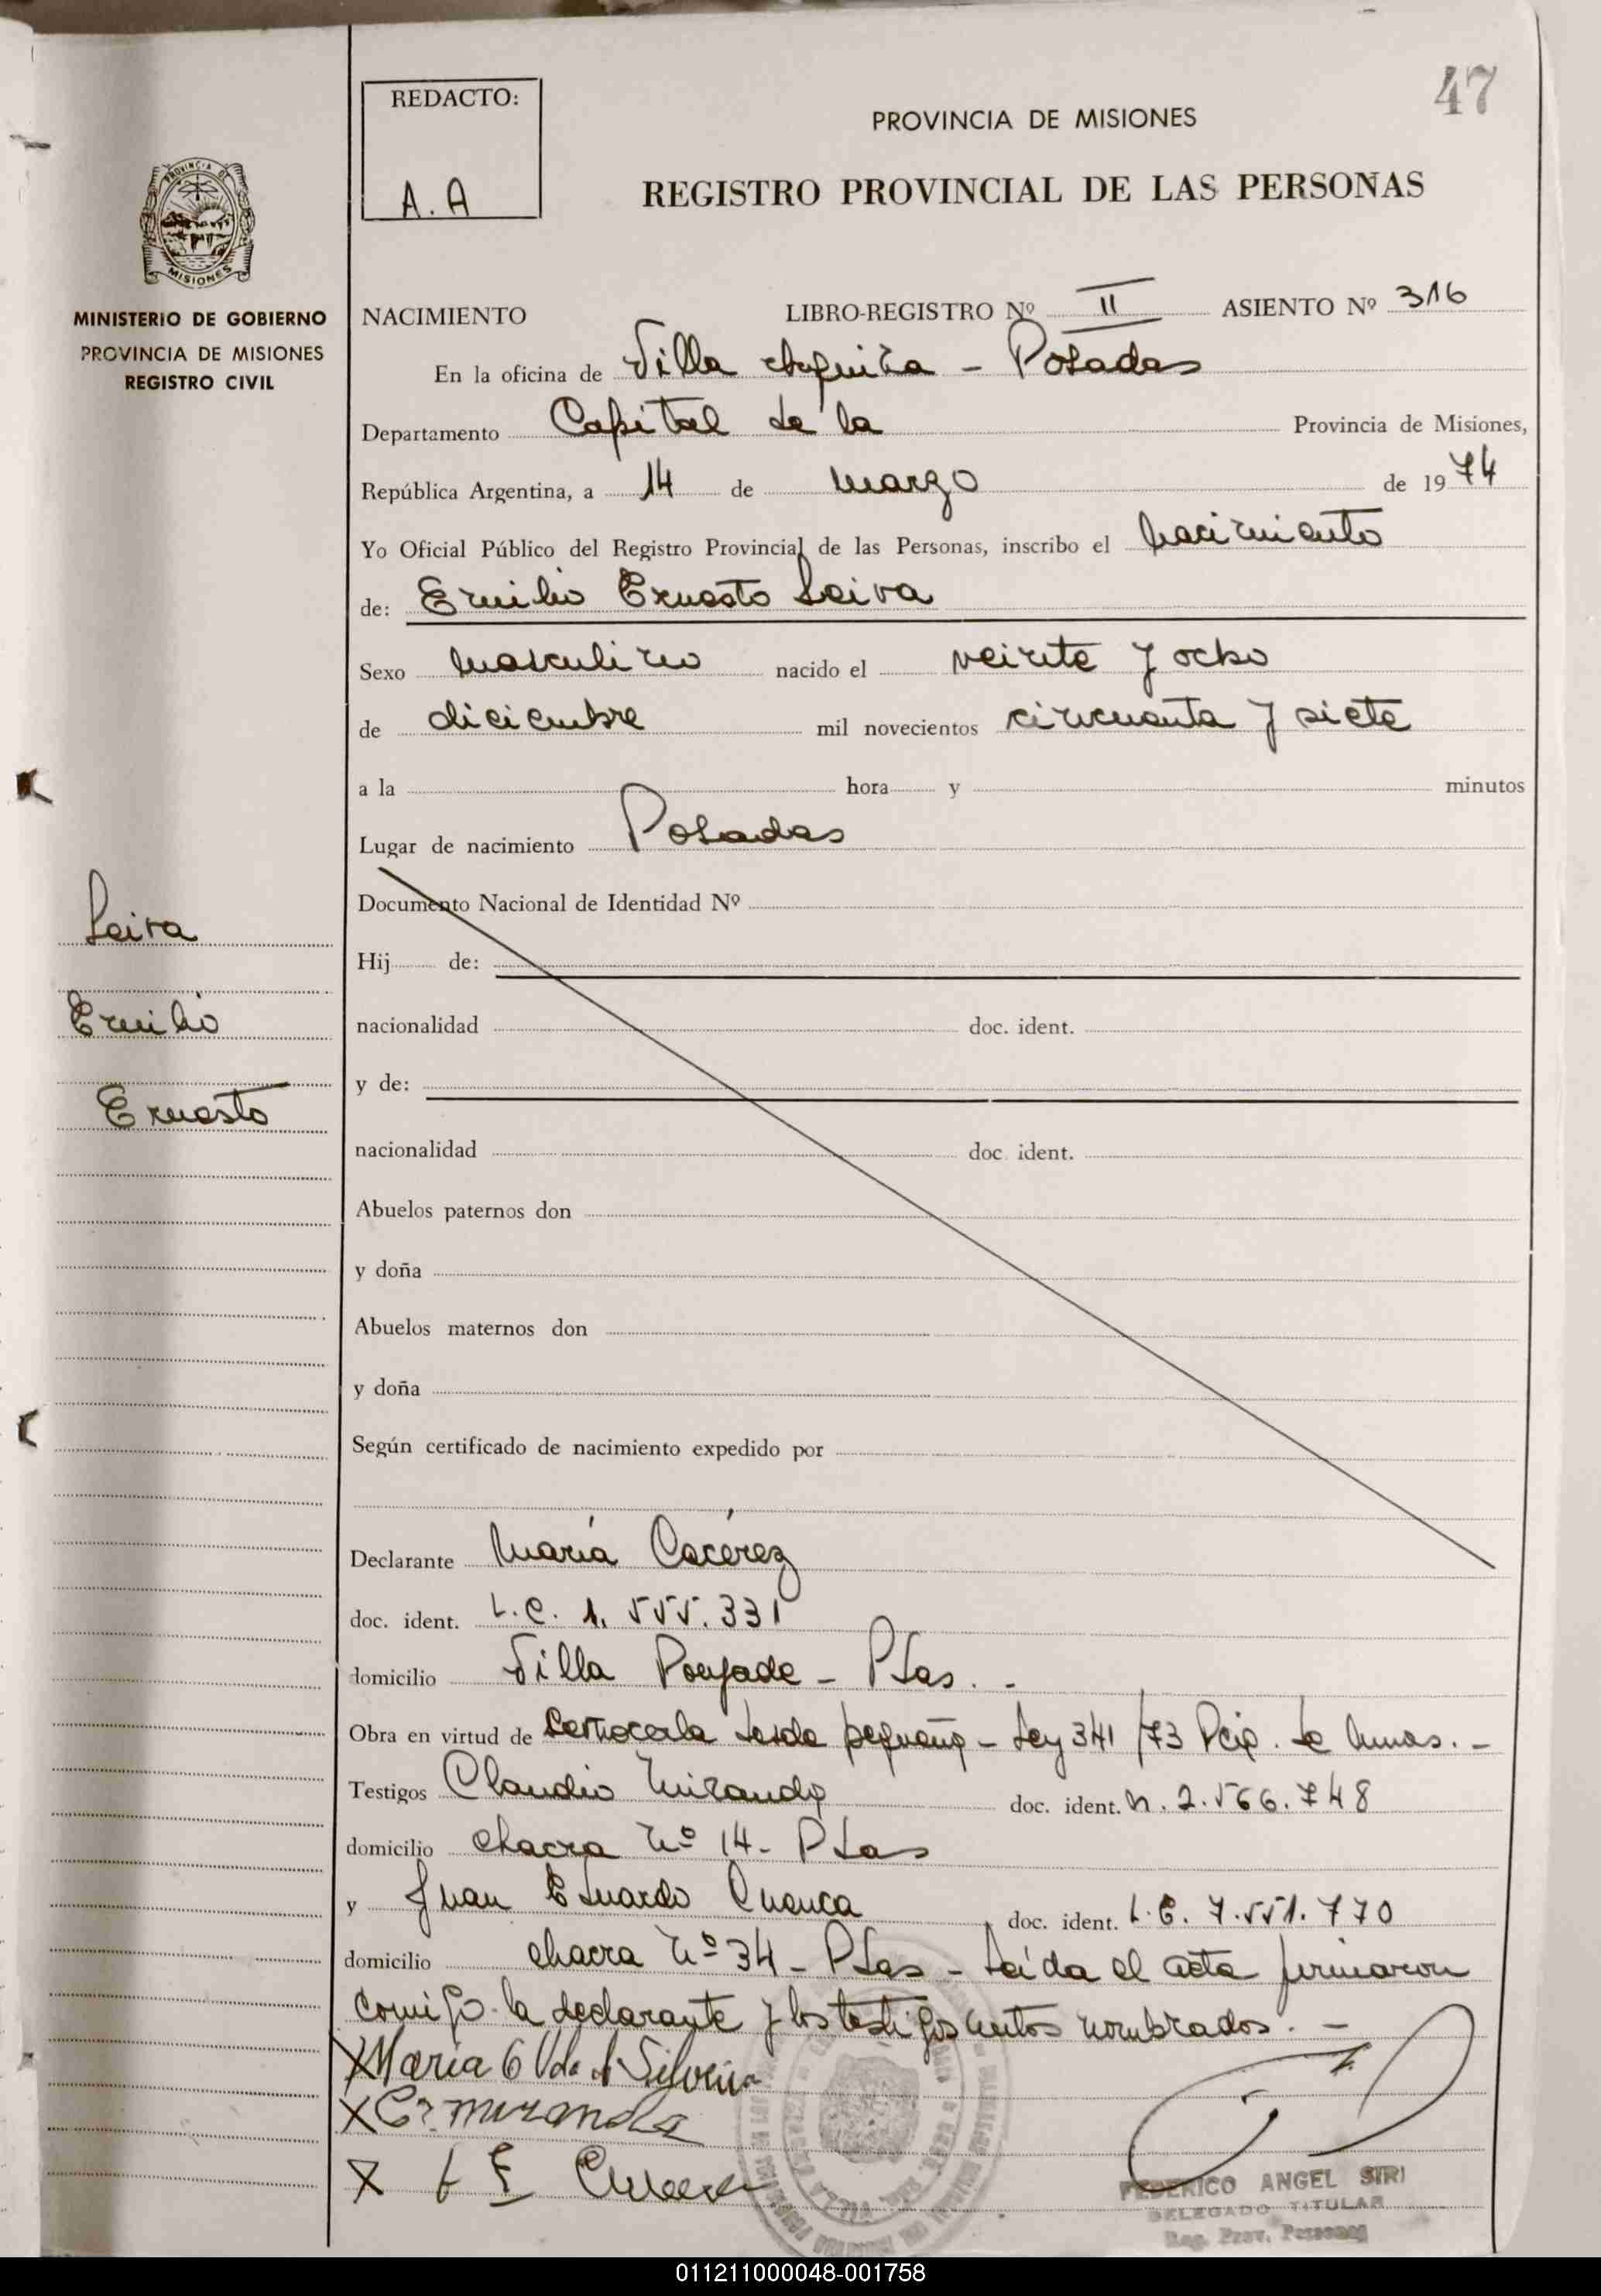 47
REDACTO:
A.A
PROVINCIA DE MISIONES
REGISTRO PROVINCIAL DE LAS PERSONAS
PROVINCIA DE
MISIONES
MINISTERIO DE GOBIERNO
PROVINCIA DE MISIONES
REGISTRO CIVIL
NACIMIENTO LIBRO-REGISTRO Nº II ASIENTO Nº 316
En la oficina de Villa Urquiza - Posadas
Departamento Capital de la Provincia de Misiones,
República Argentina, a 14 de marzo de 1974
Yo Oficial Público del Registro Provincial de las Personas, inscribo el nacimiento
de: Emilio Ernesto Leiva
Sexo masculino nacido el veinte y ocho
de diciembre mil novecientos cincuenta y siete
a la hora y minutos
Lugar de nacimiento Posadas
Leiva
Emilio
Ernesto
Documento Nacional de Identidad Nº
Hij de:
nacionalidad doc. ident.
y de:
nacionalidad doc. ident.
Abuelos paternos don
y doña
Abuelos maternos don
y doña
Según certificado de nacimiento expedido por
Declarante María Cácerez
doc. ident. L.C. 1.555.331
domicilio Villa Poujade - Pdas. -
Obra en virtud de desde Ley 341/73 de -
Testigos Claudio Miranda doc. ident. M. 2.566.748
domicilio chacra Nº 14 - Pdas
y Juan Eduardo Cuenca doc. ident. L.E. 7.551.770
domicilio chacra Nº 34 - Pdas - Leída el acta firmaron
conmigo la declarante y los testigos nombrados. -
X María C Vda d Silveira
X Cr miranda
X J E Cuenca
FEDERICO ANGEL SIRI
DELEGADO TITULAR
Reg. Prov. Personas
011211000048-001758